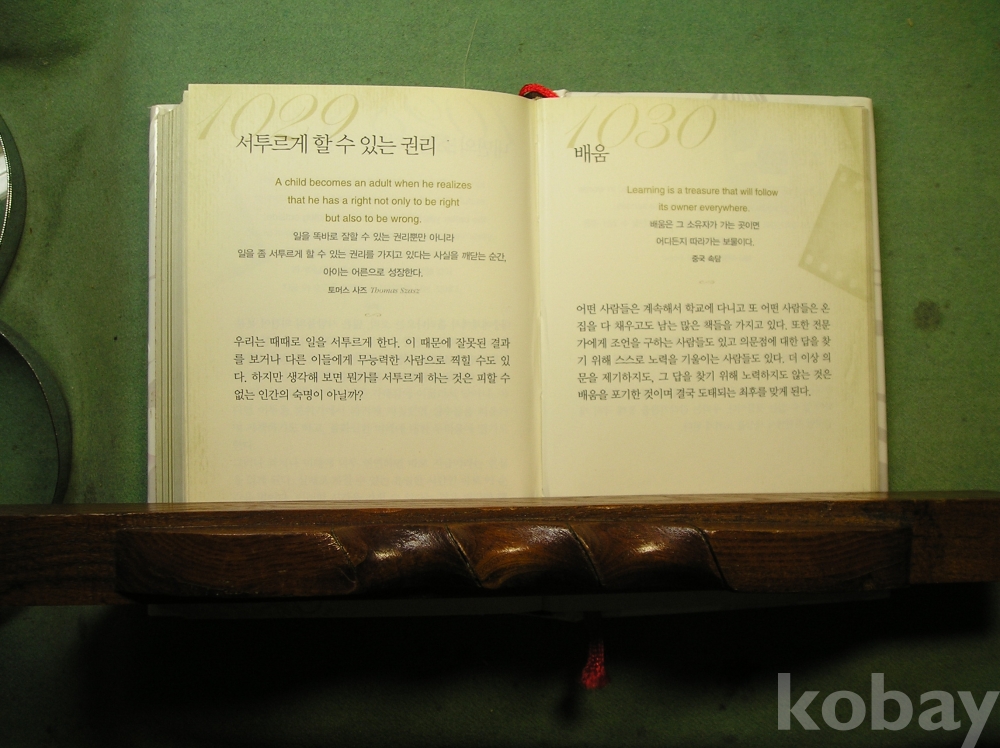 1029
서투르게 할 수 있는 권리
A child becomes an adult when he realizes
that he has a right not only to be right
but also to be wrong.
일을 똑바로 잘할 수 있는 권리뿐만 아니라
일을 좀 서투르게 할 수 있는 권리를 가지고 있다는 사실을 깨닫는 순간,
아이는 어른으로 성장한다.
토머스 사즈 Thomas Szasz
우리는 때때로 일을 서투르게 한다. 이 때문에 잘못된 결과
를 보거나 다른 이들에게 무능력한 사람으로 찍힐 수도 있
다. 하지만 생각해 보면 뭔가를 서투르게 하는 것은 피할 수
없는 인간의 숙명이 아닐까?
1030
배움
Learning is a treasure that will follow
its owner everywhere.
배움은 그 소유자가 가는 곳이면
어디든지 따라가는 보물이다.
중국 속담
어떤 사람들은 계속해서 학교에 다니고 또 어떤 사람들은 온
집을 다 채우고도 남는 많은 책들을 가지고 있다. 또한 전문
가에게 조언을 구하는 사람들도 있고 의문점에 대한 답을 찾
기 위해 스스로 노력을 기울이는 사람들도 있다. 더 이상 의
문을 제기하지도, 그 답을 찾기 위해 노력하지도 않는 것은
배움을 포기한 것이며 결국 도태되는 최후를 맞게 된다.
kobay